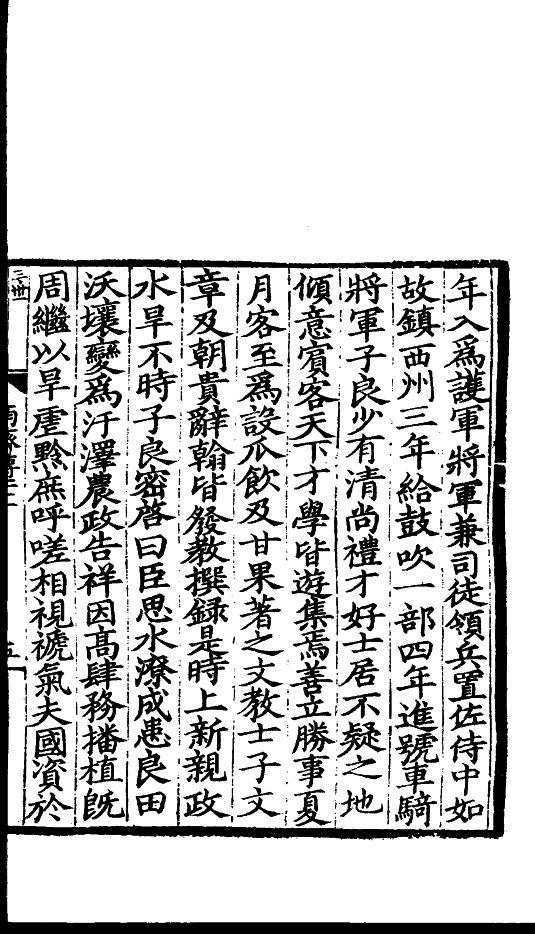 年入爲護軍將軍兼司徒領兵置佐侍中如
故鎮西州三年給鼓吹一部四年進號車騎
將軍子良少有清尚禮才好士居不疑之地
傾意賔客天下才學皆遊集焉善立勝事夏
月客至爲設瓜飲及甘果著之文教士子文
章及朝貴辭翰皆發教撰録是時上新親政
水旱不時子良密啓曰臣思水潦成患良田
沃壤變爲汙澤農政告祥因高肆務播植旣
周繼以旱虐黔庶呼嗟相視褫氣夫國資於